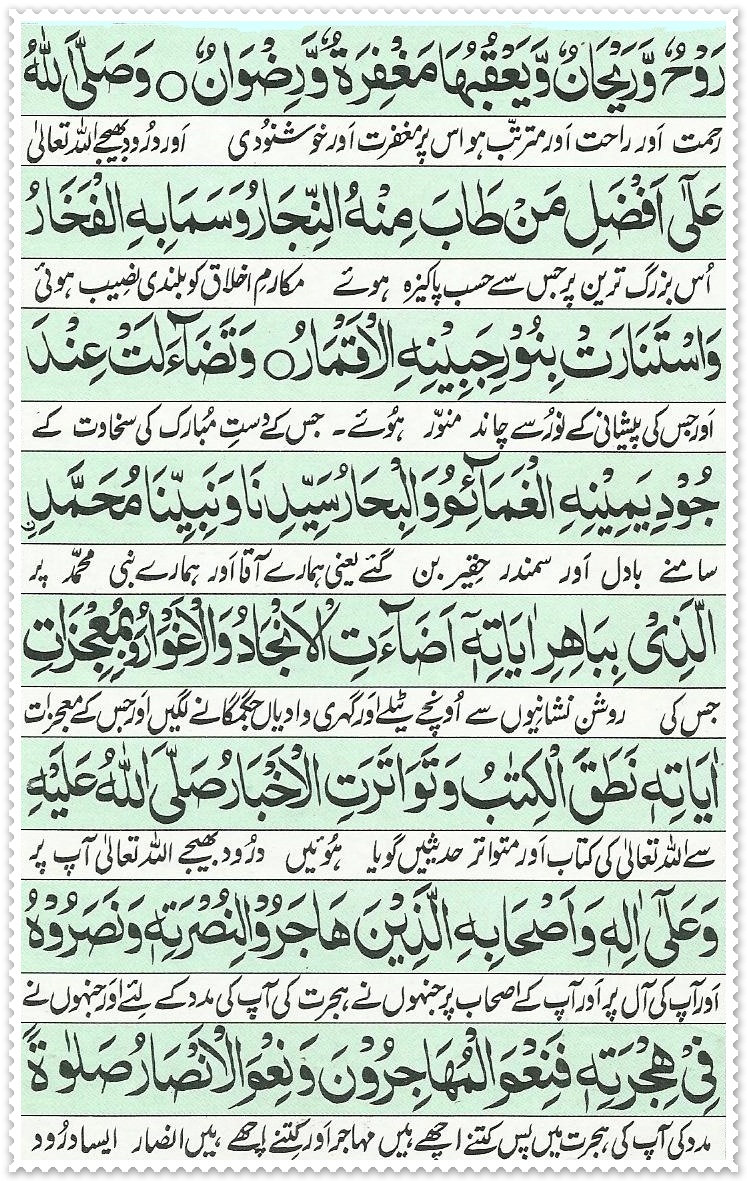 رَوْحٌ وَّرَيْحَانٌ وَّيَعْقُبُهَا مَغْفِرَةٌ وَّرِضْوَانٌ ○ وَصَلَّى اللّٰهُ
رحمت اور راحت اور مترتّب ہو اس پر مغفرت اور خوشنودی اور درود بھیجے اللہ تعالیٰ
عَلٰٓى اَفْضَلِ مَنْ طَابَ مِنْهُ النِّجَارُ وَسَمَا بِهِ الْفَخَارُ
اُس بزرگ ترین پر جس سے حسب پاکیزہ ہوئے مکارم اخلاق کو بلندی نصیب ہوئی
وَاسْتَنَارَتْ بِنُوْرِ جَبِيْنِهِ الْاَقْمَارُ ○ وَتَضَآءَلَتْ عِنْدَ
اور جس کی پیشانی کے نور سے چاند منوّر ہوئے۔ جس کے دستِ مبارک کی سخاوت کے
جُوْدِ يَمِيْنِهِ الْغَمَآئِمُ وَالْبِحَارُ سَيِّدِنَا وَنَبِيِّنَا مُحَمَّدِنِ
سامنے بادل اور سمندر حقیر بن گئے یعنی ہمارے آقا اور ہمارے نبی محمّد پر
الَّذِىْ بِبَاهِرِ اٰيَاتِهٖٓ اَضَآءَتِ الْاَنْجَادُ وَالْاَغْوَارُ وَبِمُعْجِزَاتِ
جس کی روشن نشانیوں سے اُونچے ٹیلے اور گہری وادیاں جگمگانے لگیں اور جس کے معجزات
اٰيَاتِهٖ نَطَقَ الْكِتٰبُ وَتَوَاتَرَتِ الْاَخْبَارُ صَلَّى اللّٰهُ عَلَيْهِ
سے اللہ تعالیٰ کی کتاب اور متواتر حدیثیں گویا ہوئیں درود بھیجے اللہ تعالیٰ آپ پر
وَعَلٰٓى اٰلِهٖ وَاَصْحَابِهِ الَّذِيْنَ هَاجَرُوْا لِنُصْرَتِهٖ وَنَصَرُوْهُ
اور آپ کی آل پر اور آپ کے اصحاب پر جنہوں نے ہجرت کی آپ کی مدد کے لئے اور جنہوں نے
فِىْ هِجْرَتِهٖ فَنِعْمَ الْمُهَاجِرُوْنَ وَنِعْمَ الْاَنْصَارُ صَلٰوةً
مدد کی آپ کی ہجرت میں پس کتنے اچھے ہیں مہاجر اور کتنے اچھے ہیں انصار ایسا درود